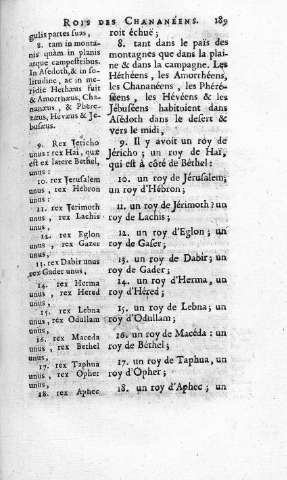 ROIS DES CHANANÉENS. 189
gulis partes suas,
8. tam in monta-
nis quàm in planis
atque campestribus.
In Asedoth, & in so-
litudine, ac in me-
ridie Hethæus fuit
& Amorrhæus, Cha-
nanæus, & Phere-
zæus, Hevæus & Je-
busæus.
9. Rex Jericho
unus: rex Hai, quæ
est ex latere Bethel,
unus:
10. rex Jerusalem
unus, rex Hebron
unus:
11. rex Jerimoth
unus, rex Lachis
unus,
12. rex Eglon
unus, rex Gazer
unus,
13. rex Dabir unus
rex Gader unus,
14. rex Herma
unus, rex Hered
unus,
15. rex Lebna
unus, rex Odullam
unus,
16. rex Maceda
unus, rex Bethel
unus,
17. rex Taphua
unus, rex Opher
unus,
18. rex Aphec
roit échuë;
8. tant dans le païs des
montagnes que dans la plai-
ne & dans la campagne. Les
Héthéens, les Amorrhéens,
les Chananéens, les Phéré-
séens, les Hévéens & les
Jébuséens habitoient dans
Asedoth dans le desert &
vers le midi,
9. Il y avoit un roy de
Jéricho; un roy de Haï,
qui est à côté de Béthel:
10. un roy de Jérusalem;
un roy d'Hébron;
11. un roy de Jérimoth; un
roy de Lachis;
12. un roy d'Eglon; un
roy de Gaser;
13. un roy de Dabir; un
roy de Gader;
14. un roy d'Herma, un
roy d'Héred;
15. un roy de Lebna; un
roy d'Odullam;
16. un roy de Macéda: un
roy de Béthel;
17. un roy de Taphua, un
roy d'Opher;
18. un roy d'Aphec; un